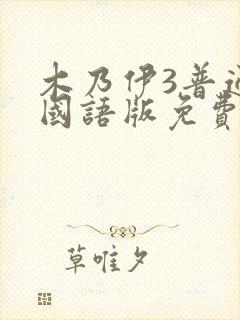 木乃伊3普通
國語版免費
草唯夕